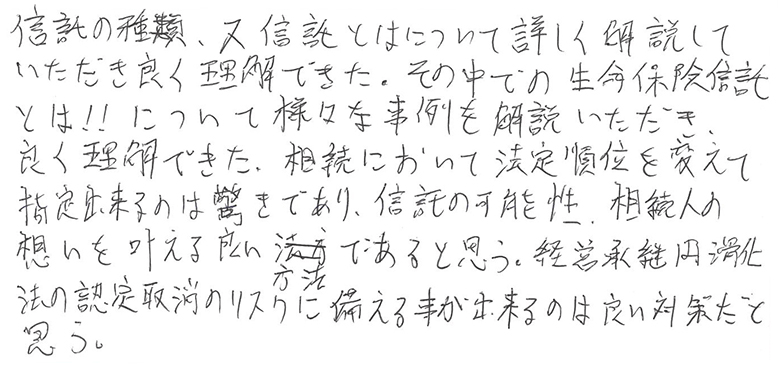 信託の種類、又信託とはについて詳しく解説して
いただき良く理解できた。その中での生命保険信託
とは!!について様々な事例を解説いただき、
良く理解できた。相続において法定順位を変えて
指定出来るのは驚きであり、信託の可能性、相続人の
想いを叶える良い方法であると思う。経営承継円滑化
法の認定取消のリスクに備える事が出来るのは良い対策だと
思う。